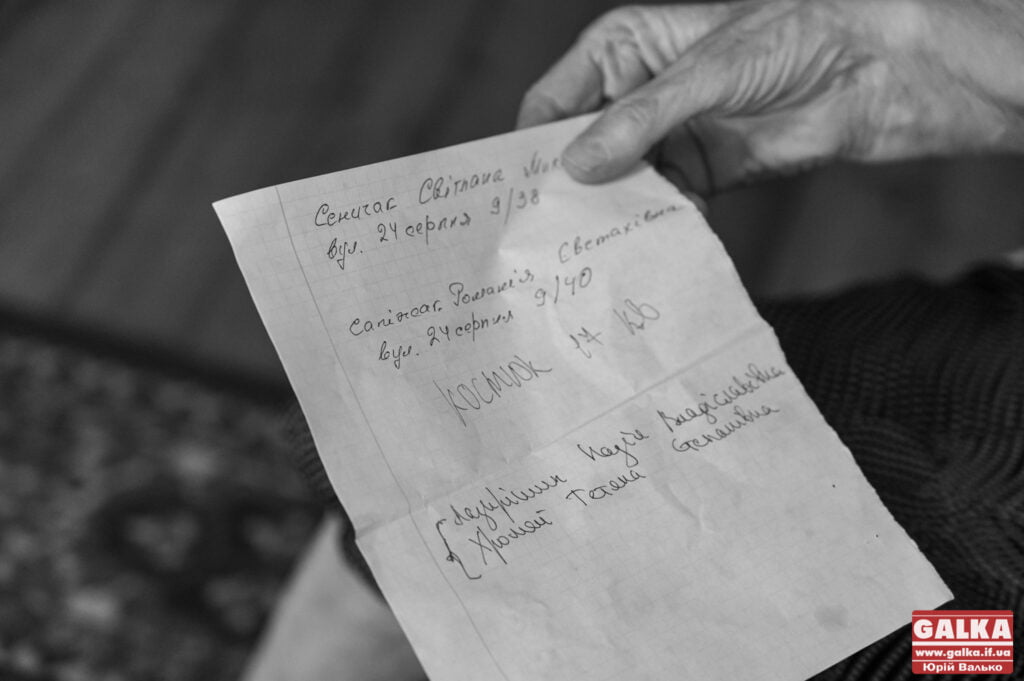 Сеничак Світлана
вул. 24 серпня 9/38
Сапіжак Романія Євстахівна
вул. 24 серпня 9/40
Костюк 27 кв
Надія Владіславівна
Хромей Тетяна Степанівна
GALKA
www.galka.if.ua
Юрій Валько